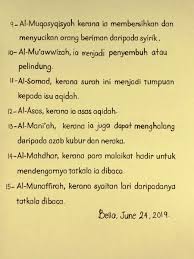 9- Al-Muqasyqisyah kerana ia membersihkan dan
menyucikan orang beriman daripada syirik.
10- Al-Mu'awwizah, ia menjadi penyembuh atau
pelindung.
11- Al-Somad, kerana surah ini menjadi tumpuan
kepada isu aqidah.
12- Al-Asas, kerana ia asas aqidah.
13- Al-Mani'ah, kerana ia juga dapat menghalang
daripada azab kubur dan neraka.
14- Al-Mahdhar, kerana para malaikat hadir untuk
mendengarnya tatkala ia dibaca.
15- Al-Munaffirah, kerana syaitan lari daripadanya
tatkala dibaca.
Bella, June 24, 2019.